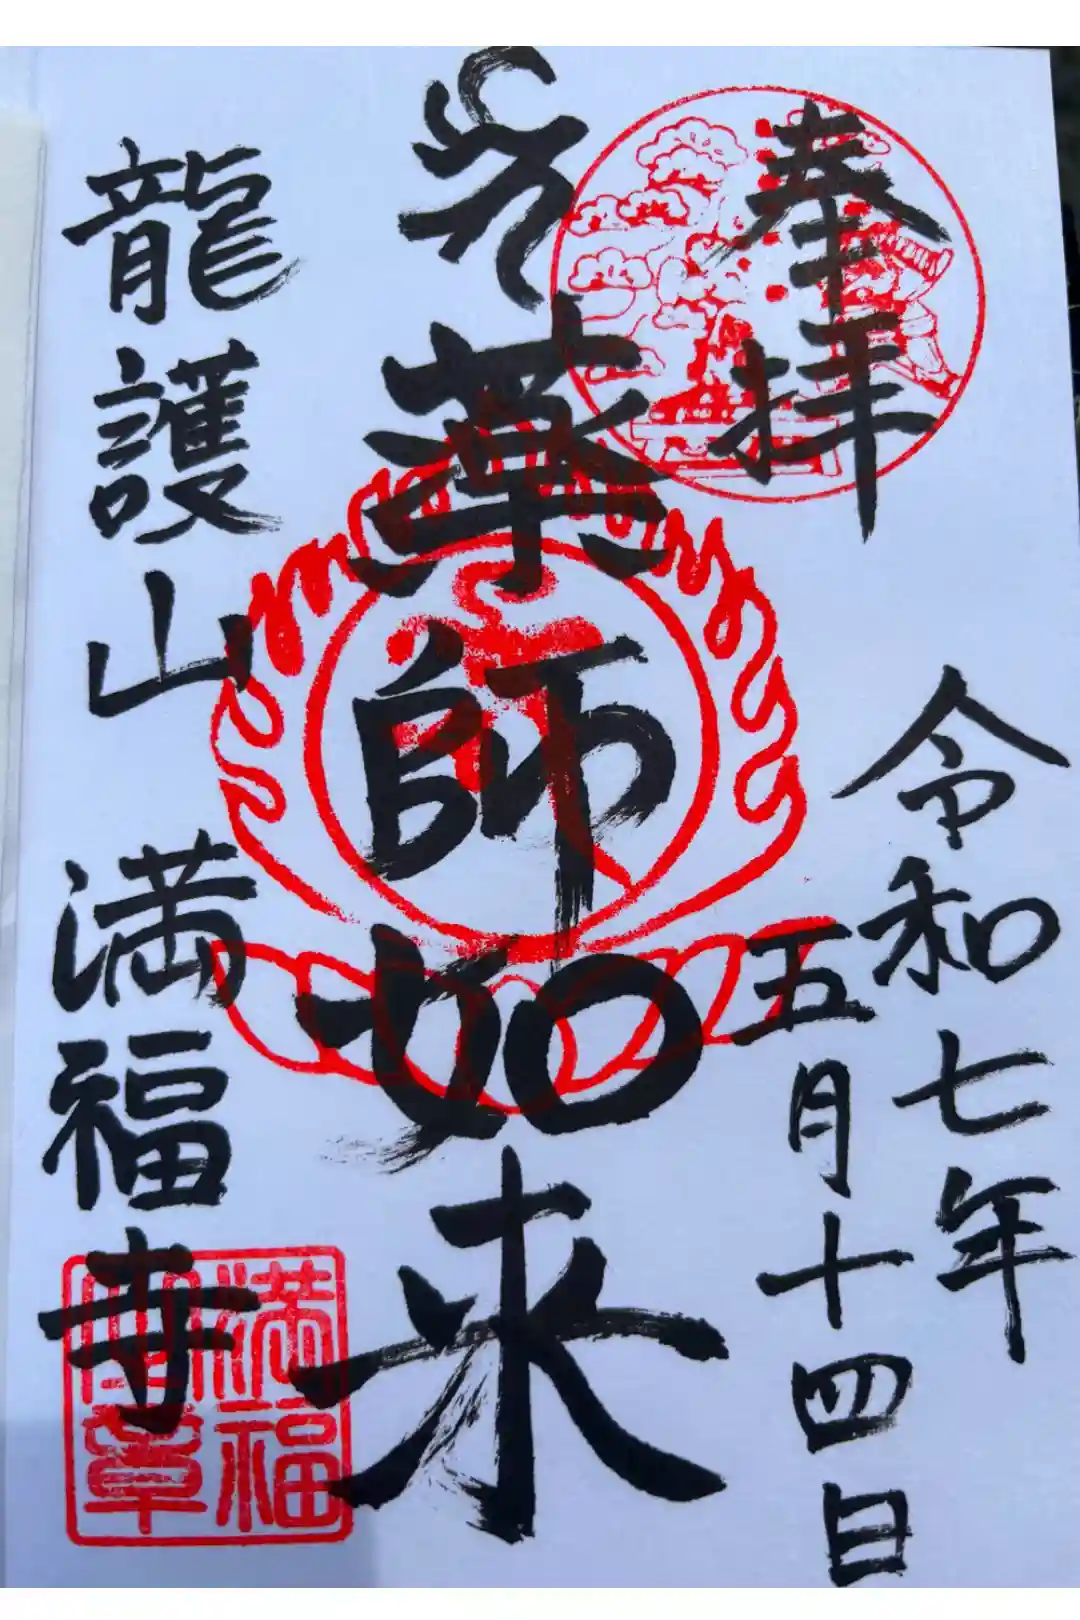 奉拝
令和七年
五月十四日
薬師如来
龍護山 満福寺
満福
章